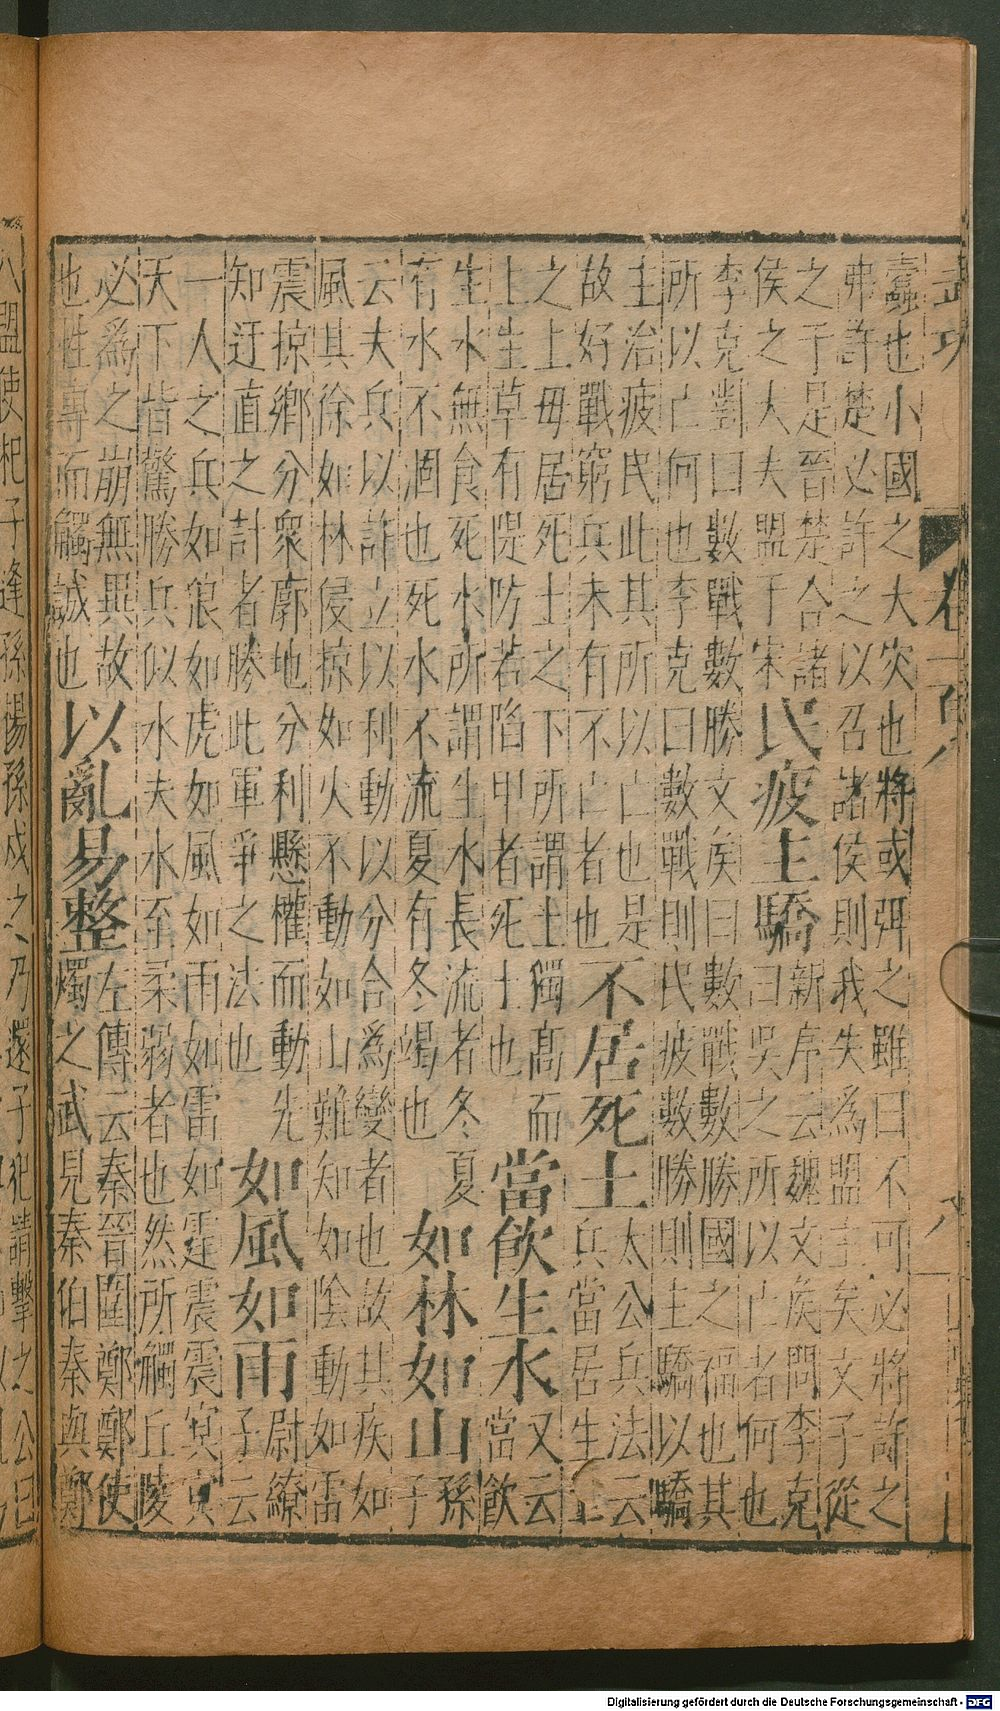 武功
卷一
八
蠹也小國之大灾也將或弭之雖曰不可必將許之
弗許楚必許之以召諸侯則我失為盟主矣文子從
之于是晉楚合諸
侯之大夫盟于宋
民疲主驕
新序云魏文矦問李克
曰吳之所以亡者何也
李克對曰數戰數勝文矦曰數戰數勝國之福也其
所以亡何也李克曰數戰則民疲數勝則主驕以驕
主治疲民此其所以亡也是
故好戰窮兵未有不亡者也
不居死土
太公兵法云
兵當居生土
之上毋居死土之下所謂土獨髙而
上生草有隄防若陷甲者死土也
當飲生水
又云
當飲
生水無食死水所謂生水長流者冬夏
有水不涸也死水不流夏有冬竭也
如林如山
孫
子
云夫兵以詐立以利動以分合爲變者也故其疾如
風其徐如林侵掠如火不動如山難知如陰動如雷
震掠鄉分衆廓地分利懸權而動先
知迂直之計者勝此軍爭之法也
如風如雨
尉繚
子云
一人之兵如狼如虎如風如雨如雷如霆震震冥冥
天下皆驚勝兵似水夫水至柔弱者也然所觸丘陵
必爲之崩無異故
也性專而觸誠也
以亂易整
左傳云秦晉圍鄭鄭使
燭之武見秦伯秦與鄭
人盟使杞子逢孫揚孫戍之乃還子犯請擊之公曰
Digitalisierung gefördert durch die Deutsche Forschungsgemeinschaft - DFG